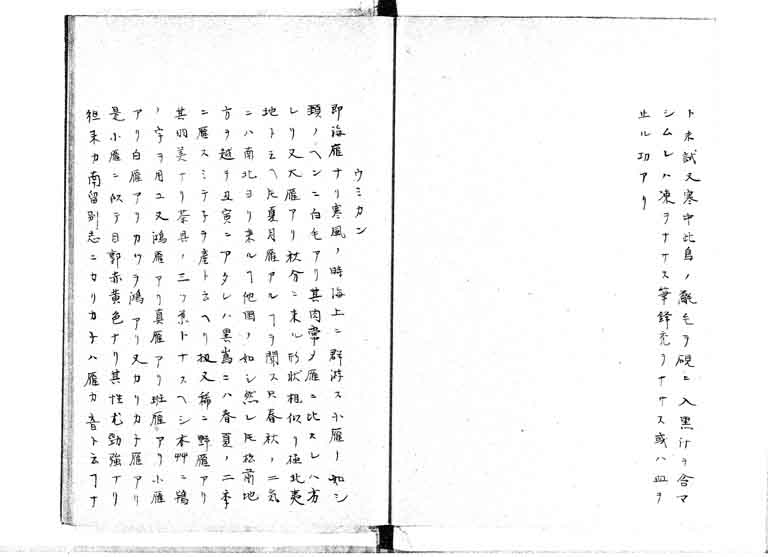 ト未試又寒中此鳥ノ毳毛ヲ硯ニ入墨汁ヲ含マ
シムレハ凍ヲナサス筆鋒禿ヲナサス或ハ血ヲ
止ル功アリ
ウミカン
即海雁ナリ寒風ノ時海上ニ群游ス小雁ノ如シ
頚ノヘンニ白毛アリ其肉常ノ雁ニ比スレハ方
レリ又大雁アリ秋分ニ来ル形状相似リ極北夷
地ト云ヘ𪜈夏月雁アルヿヲ聞ス只春秋ノ二気
ニハ南北ヨリ来ルヿ他国ノ如シ然レ𪜈松前地
方ヲ越ヲ丑寅ニアタレハ黒嶌ニハ春夏ノ二季
ニ雁スミテ子ヲ産ト云ヘリ扨又稀ニ野雁アリ
其羽美ナリ茶具ノ三ツ羽トナスヘシ本艸ニ鴇
ノ字ヲ用ユ又鴻雁アリ真雁アリ斑雁アリ小雁
アリ白雁アリカワヲ鴻アリ又カリカチ雁アリ
是小雁ニ似テ目郭赤黄色ナリ其性尤勁強ナリ
徂来カ南留別志ニカリカチハ雁カ音ト云フナ